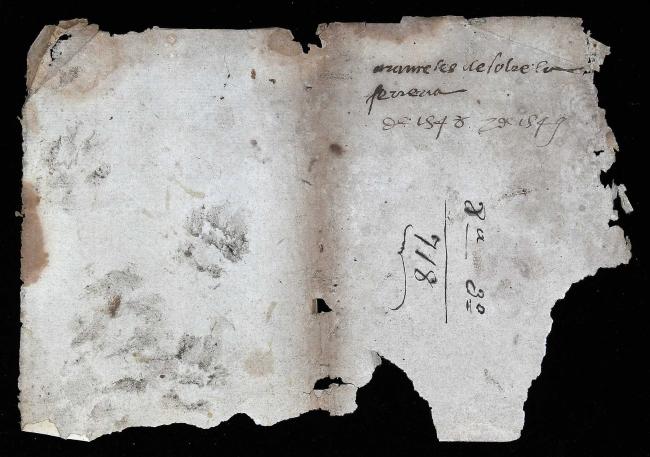 aranceles de sobre la
ferreria
de 1548 y de 1549
8ª 3º
718